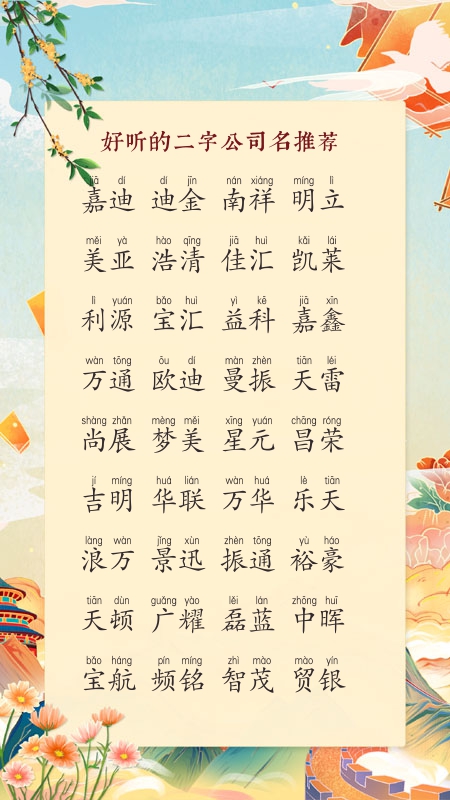 好听的二字公司名推荐
jiā dí dí jīn nán xiáng míng lì
嘉迪 迪金 南祥 明立
měi yà hào qīng jiā huì kǎi lái
美亚 浩清 佳汇 凯莱
lì yuán bǎo huì yì kē jiā xīn
利源 宝汇 益科 嘉鑫
wàn tōng ōu dí màn zhèn tiān léi
万通 欧迪 曼振 天雷
shàng zhǎn mèng měi xīng yuán chāng róng
尚展 梦美 星元 昌荣
jí míng huá lián wàn huá lè tiān
吉明 华联 万华 乐天
làng wàn jǐng xùn zhèn tōng yù háo
浪万 景迅 振通 裕豪
tiān dùn guǎng yào lěi lán zhōng huī
天顿 广耀 磊蓝 中晖
bǎo háng pín míng zhì mào mào yín
宝航 频铭 智茂 贸银